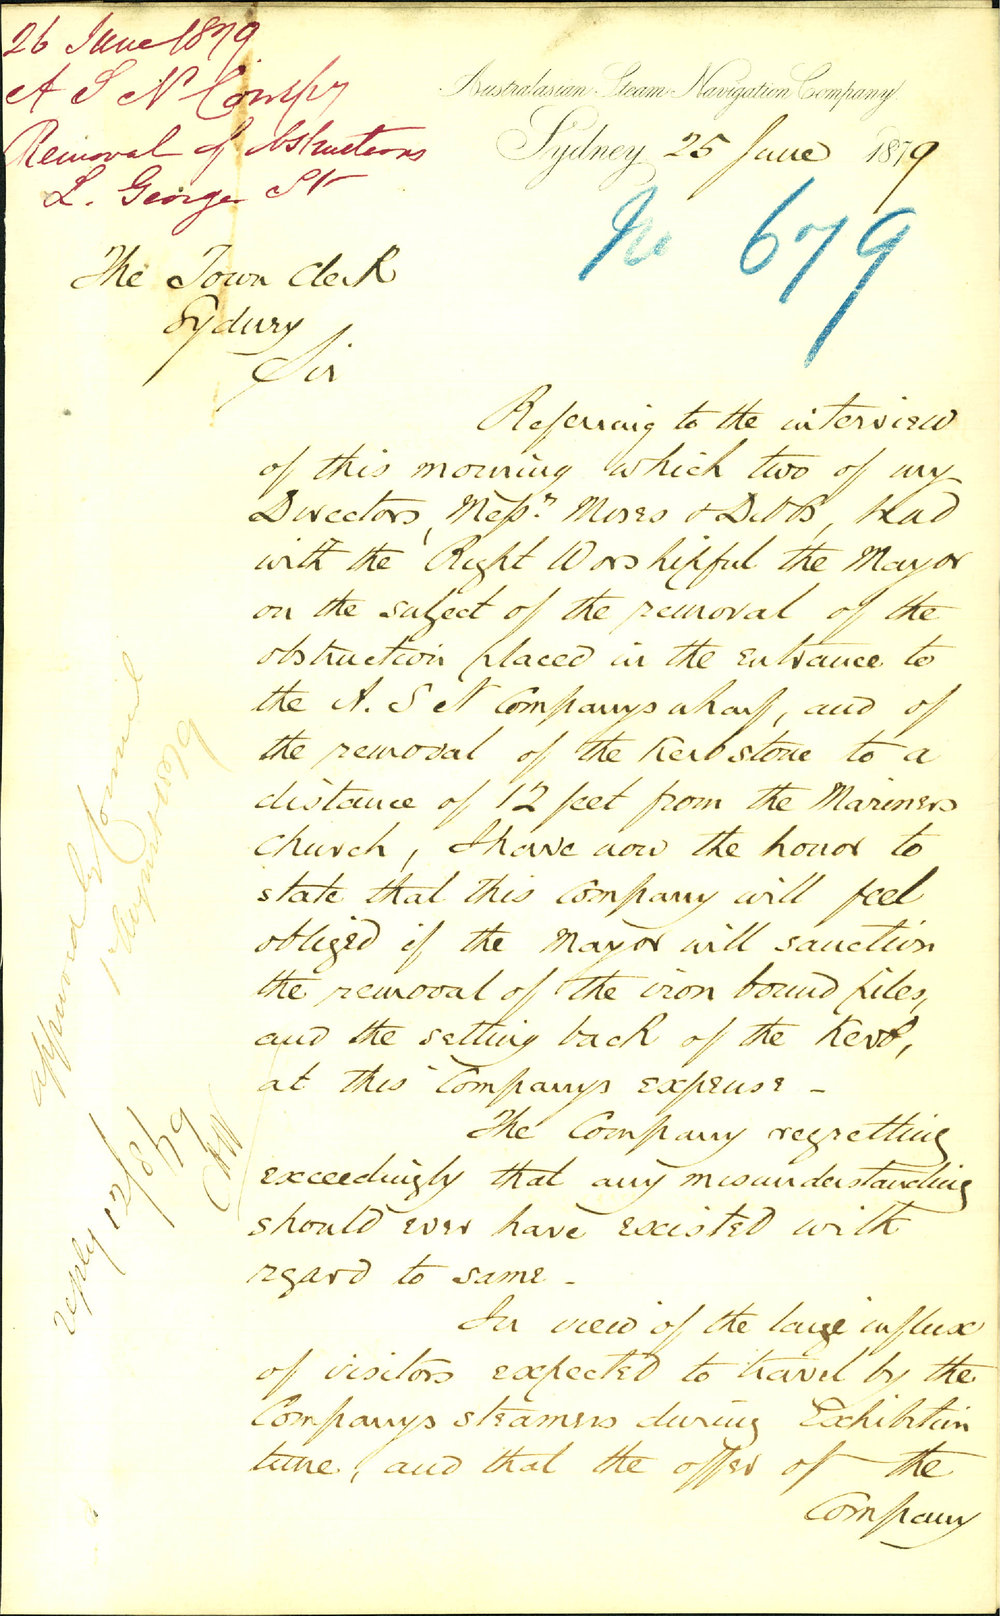 26 June 1879
A S N Compy
Removal of obstructions
L. George St
Australasian Steam Navigation Company
Sydney 25 June 1879
No 679
The Town Clerk
Sydney
Sir
Referring to the interview
of this morning which two of my
Directors, Messrs. Moses & Dibbs, had
with the Right Worshipful the Mayor
on the subject of the removal of the
obstruction placed in the entrance to
the A. S N Companys wharf, and of
the removal of the Kerbstone to a
distance of 12 feet from the Mariners
Church, I have now the honor to
state that this Company will feel
obliged if the Mayor will sanction
the removal of the iron bound piles,
and the setting back of the Kerb,
at this Companys expense -
The Company regretting
exceedingly that any misunderstanding
should ever have existed with
regard to same -
In view of the large influx
of visitors expected to travel by the
Companys steamers during Exhibition
time, and that the offer of the
Company
approved by Council
1 August 1879
reply 12/8/79